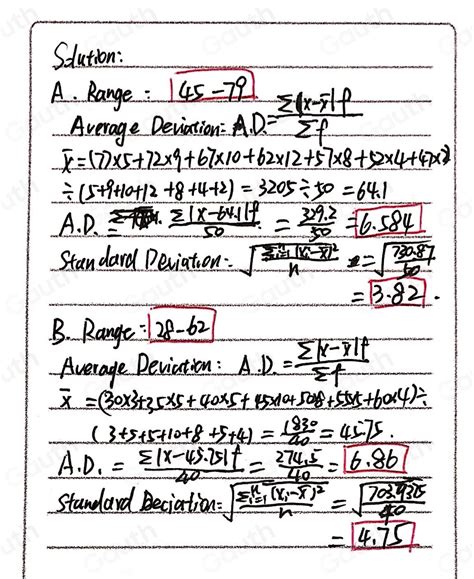 Solution:
A. Range: 45-79
Average Deviation: A.D. = Σ|x-x̄|f / Σf
x̄ = (77×5+72×9+67×10+62×12+57×8+52×4+47×2)
÷(5+9+10+12+8+4+2) = 3205÷50 = 64.1
A.D. = Σ|x-64.1|f / 50 = 329.2 / 50 = 6.584
Standard Deviation: √(Σⁿᵢ₌₁(xᵢ-x̄)² / n) = √(730.87 / 50)
= 3.82.
B. Range: 28-62
Average Deviation: A.D. = Σ|x-x̄|f / Σf
x̄ = (30×3+35×5+40×5+45×10+50×8+55×5+60×4)÷
(3+5+5+10+8+5+4) = 1830 / 40 = 45.75.
A.D. = Σ|x-45.75|f / 40 = 274.5 / 40 = 6.86
Standard Deciation: √(Σⁿᵢ₌₁(xᵢ-x̄)² / n) = √(703.9375 / 40)
= 4.75